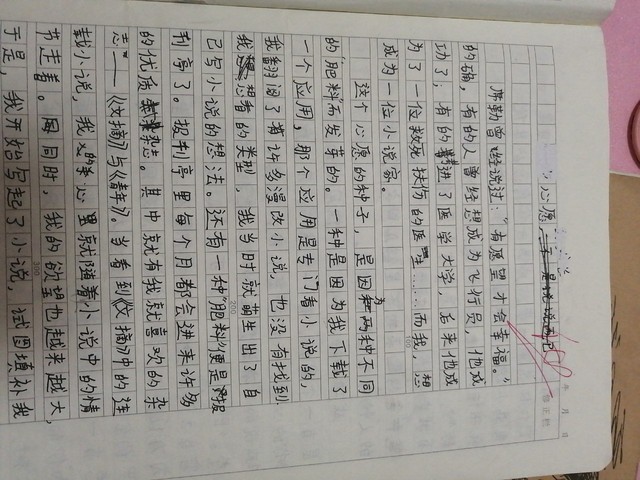 心愿
年 月 日
席勒曾经说过：“有愿望才会幸福。”
的确，有的人曾经想成为飞行员，他成
功了，有的进了医学大学，后来他成
为了一位救死扶伤的医生……而我，想
成为一位小说家。
这个心愿的种子，是因为两种不同
的“肥料”而发芽的。一种是因为我下载了
一个应用，那个应用是专门看小说的，
我翻阅了有许多漫改小说，也没有找到
我想看的类型，我当时就萌生出了自
己写小说的想法。还有一种“肥料”便是报
刊亭了。报刊亭里每个月都会进来许多
的优质杂志。其中就有我就喜欢的杂
志——《文摘》与《青年》。当看到《文摘》中的连
载小说，我的心里就随着小说中的情
节走着。同时，我的欲望也越来越大，
于是，我开始写起了小说，试图填补我
100
200
300